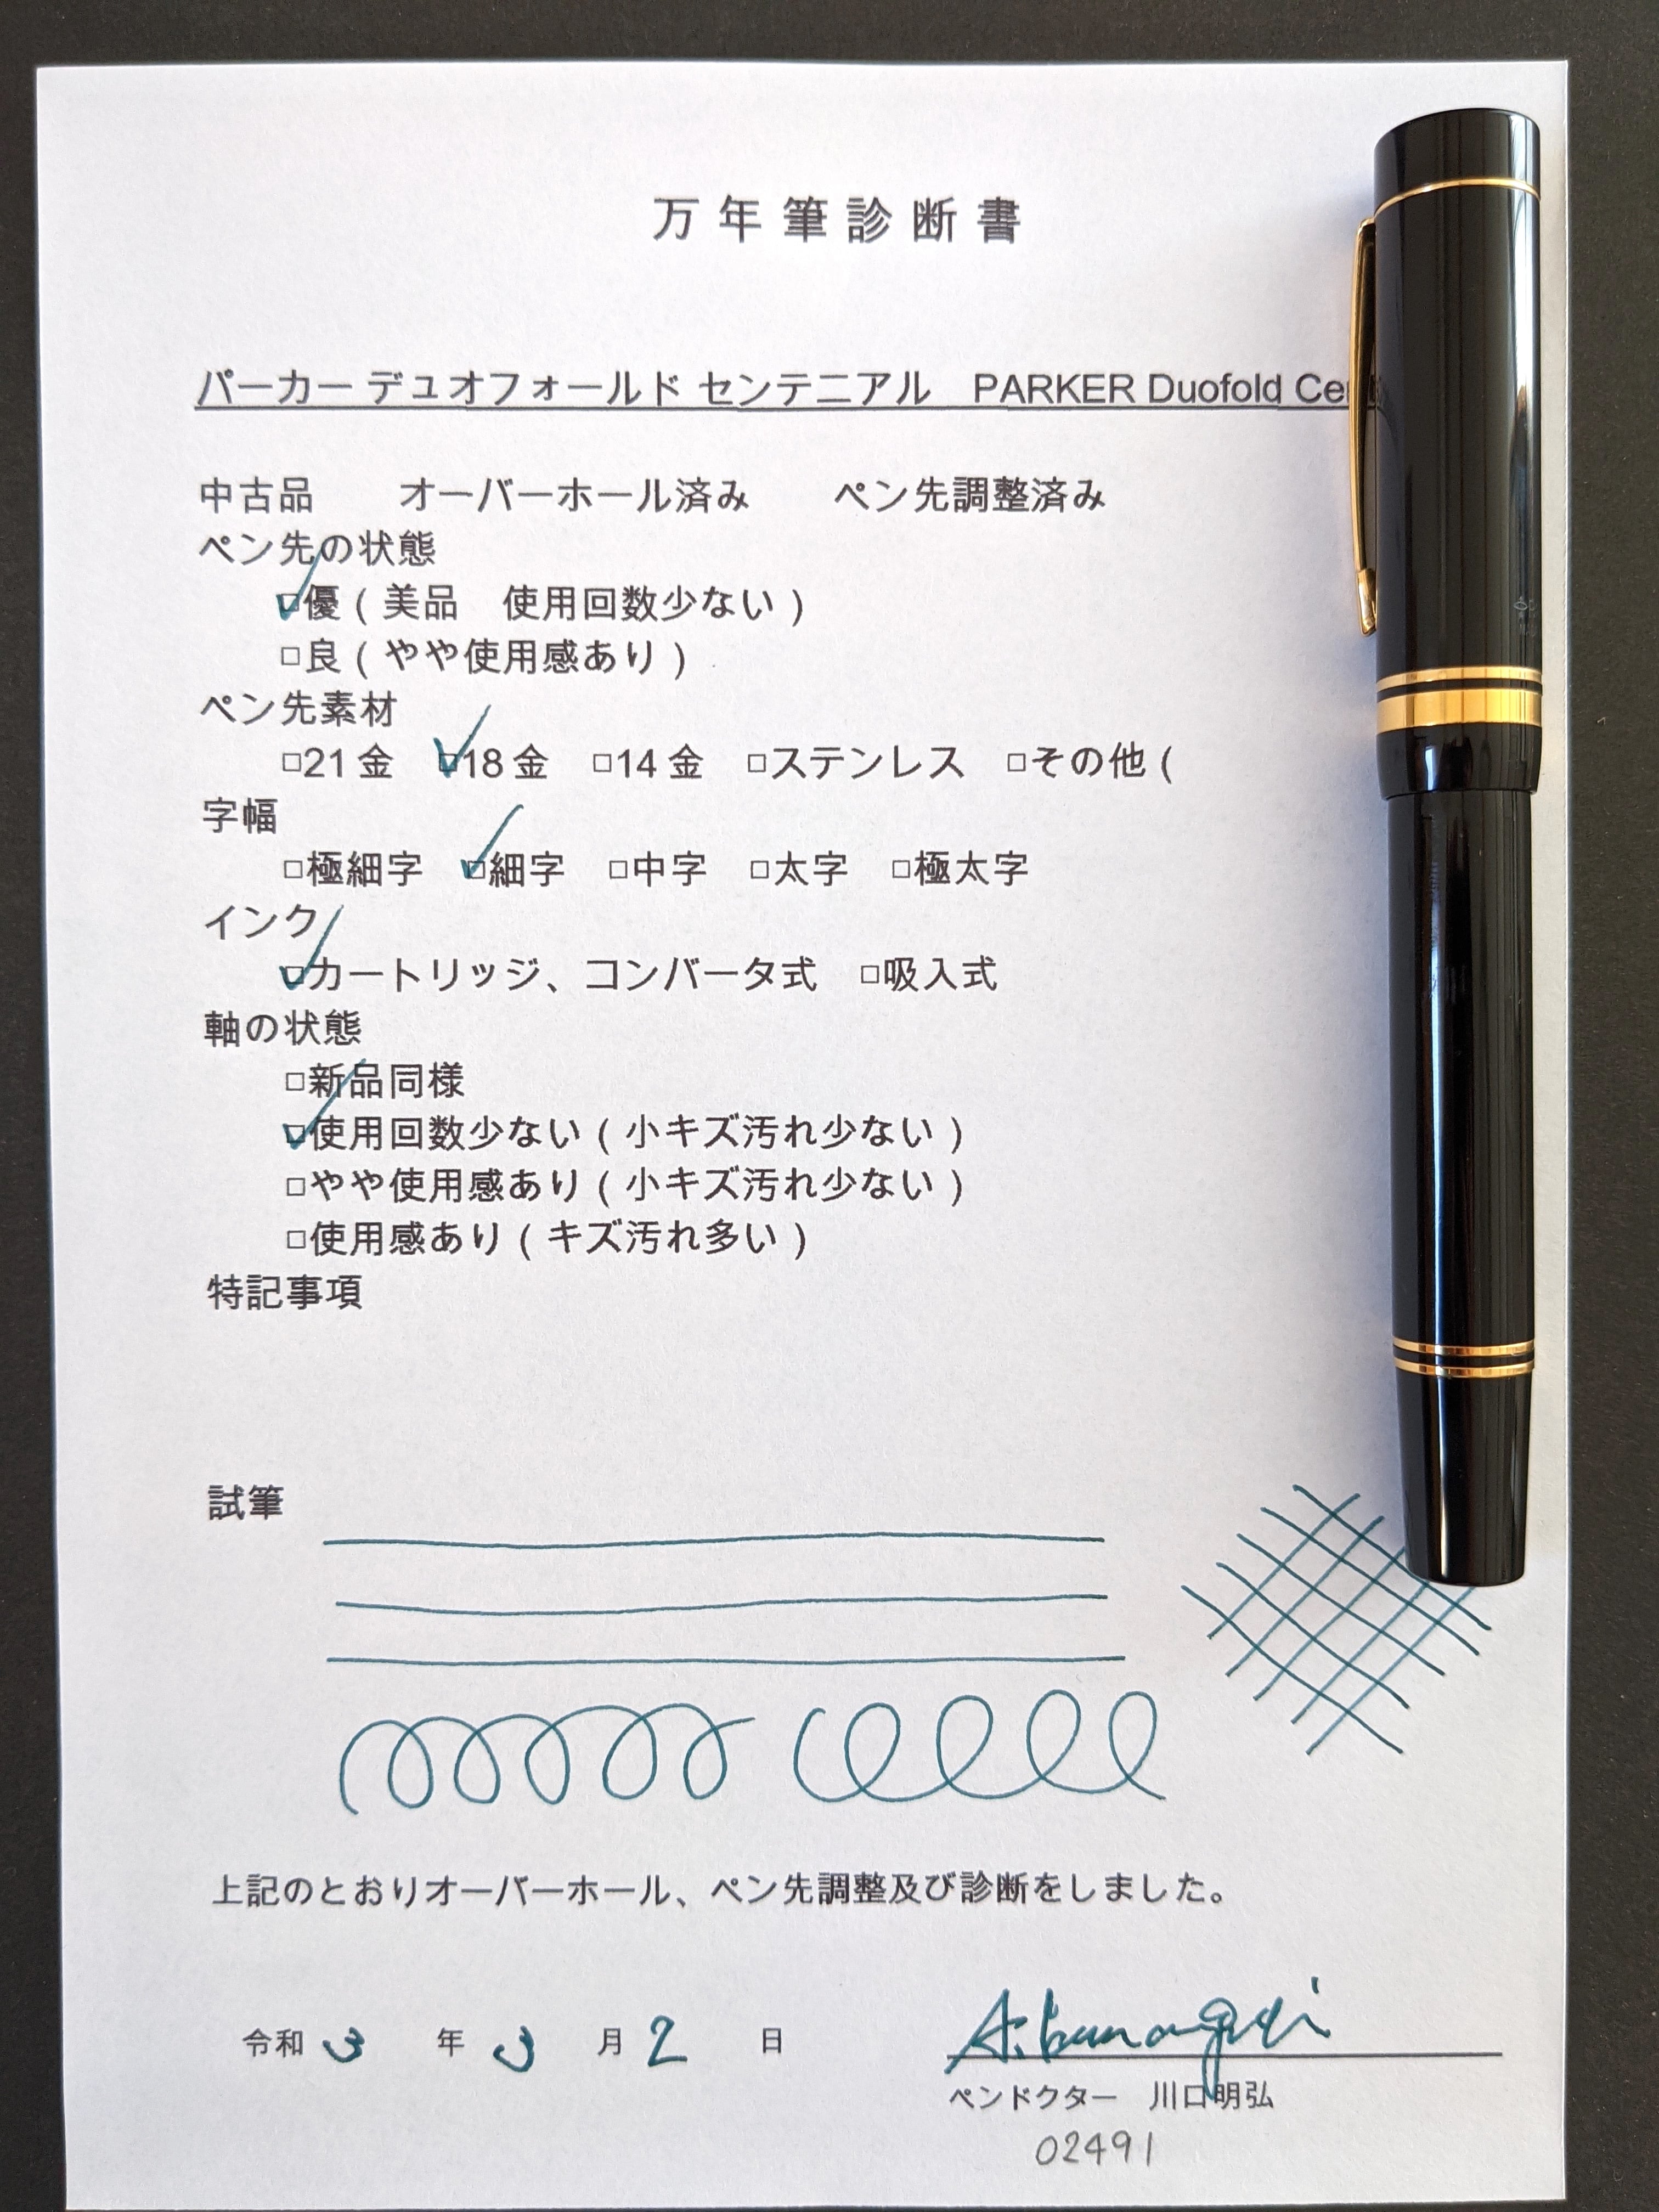 万年筆診断書
パーカー デュオフォールド センテニアル　PARKER Duofold
中古品　　オーバーホール済み　　ペン先調整済み
ペン先の状態
□優（美品　使用回数少ない）
□良（やや使用感あり）
ペン先素材
□21金　□18金　□14金　□ステンレス　□その他（
字幅
□極細字　□細字　□中字　□太字　□極太字
インク
□カートリッジ、コンバータ式　□吸入式
軸の状態
□新品同様
□使用回数少ない（小キズ汚れ少ない）
□やや使用感あり（小キズ汚れ少ない）
□使用感あり（キズ汚れ多い）
特記事項
試筆
上記のとおりオーバーホール、ペン先調整及び診断をしました。
令和 3 年 3 月 2 日
ペンドクター　川口明弘
02491